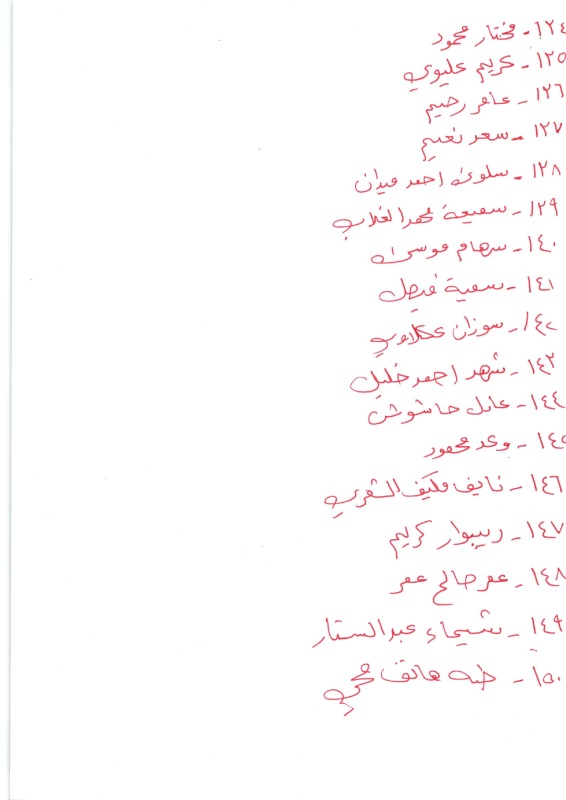 ١٢٤- مختار محمود
١٢٥- كريم عليوي
١٢٦- عامر رحيم
١٢٧- سعد نعيم
١٢٨- سلوى احمد ميدان
١٢٩- سميعة محمد الغلاب
١٤٠- سهام موسى
١٤١- سمية فيصل
١٤٢- سوزان عكلاوي
١٤٣- شهد احمد خليل
١٤٤- عادل حاشوش
١٤٥- وعد محمود
١٤٦- نايف مكيف الشمري
١٤٧- ريبوار كريم
١٤٨- عمر صالح عمر
١٤٩- شيماء عبدالستار
١٥٠- طه هاتف محي